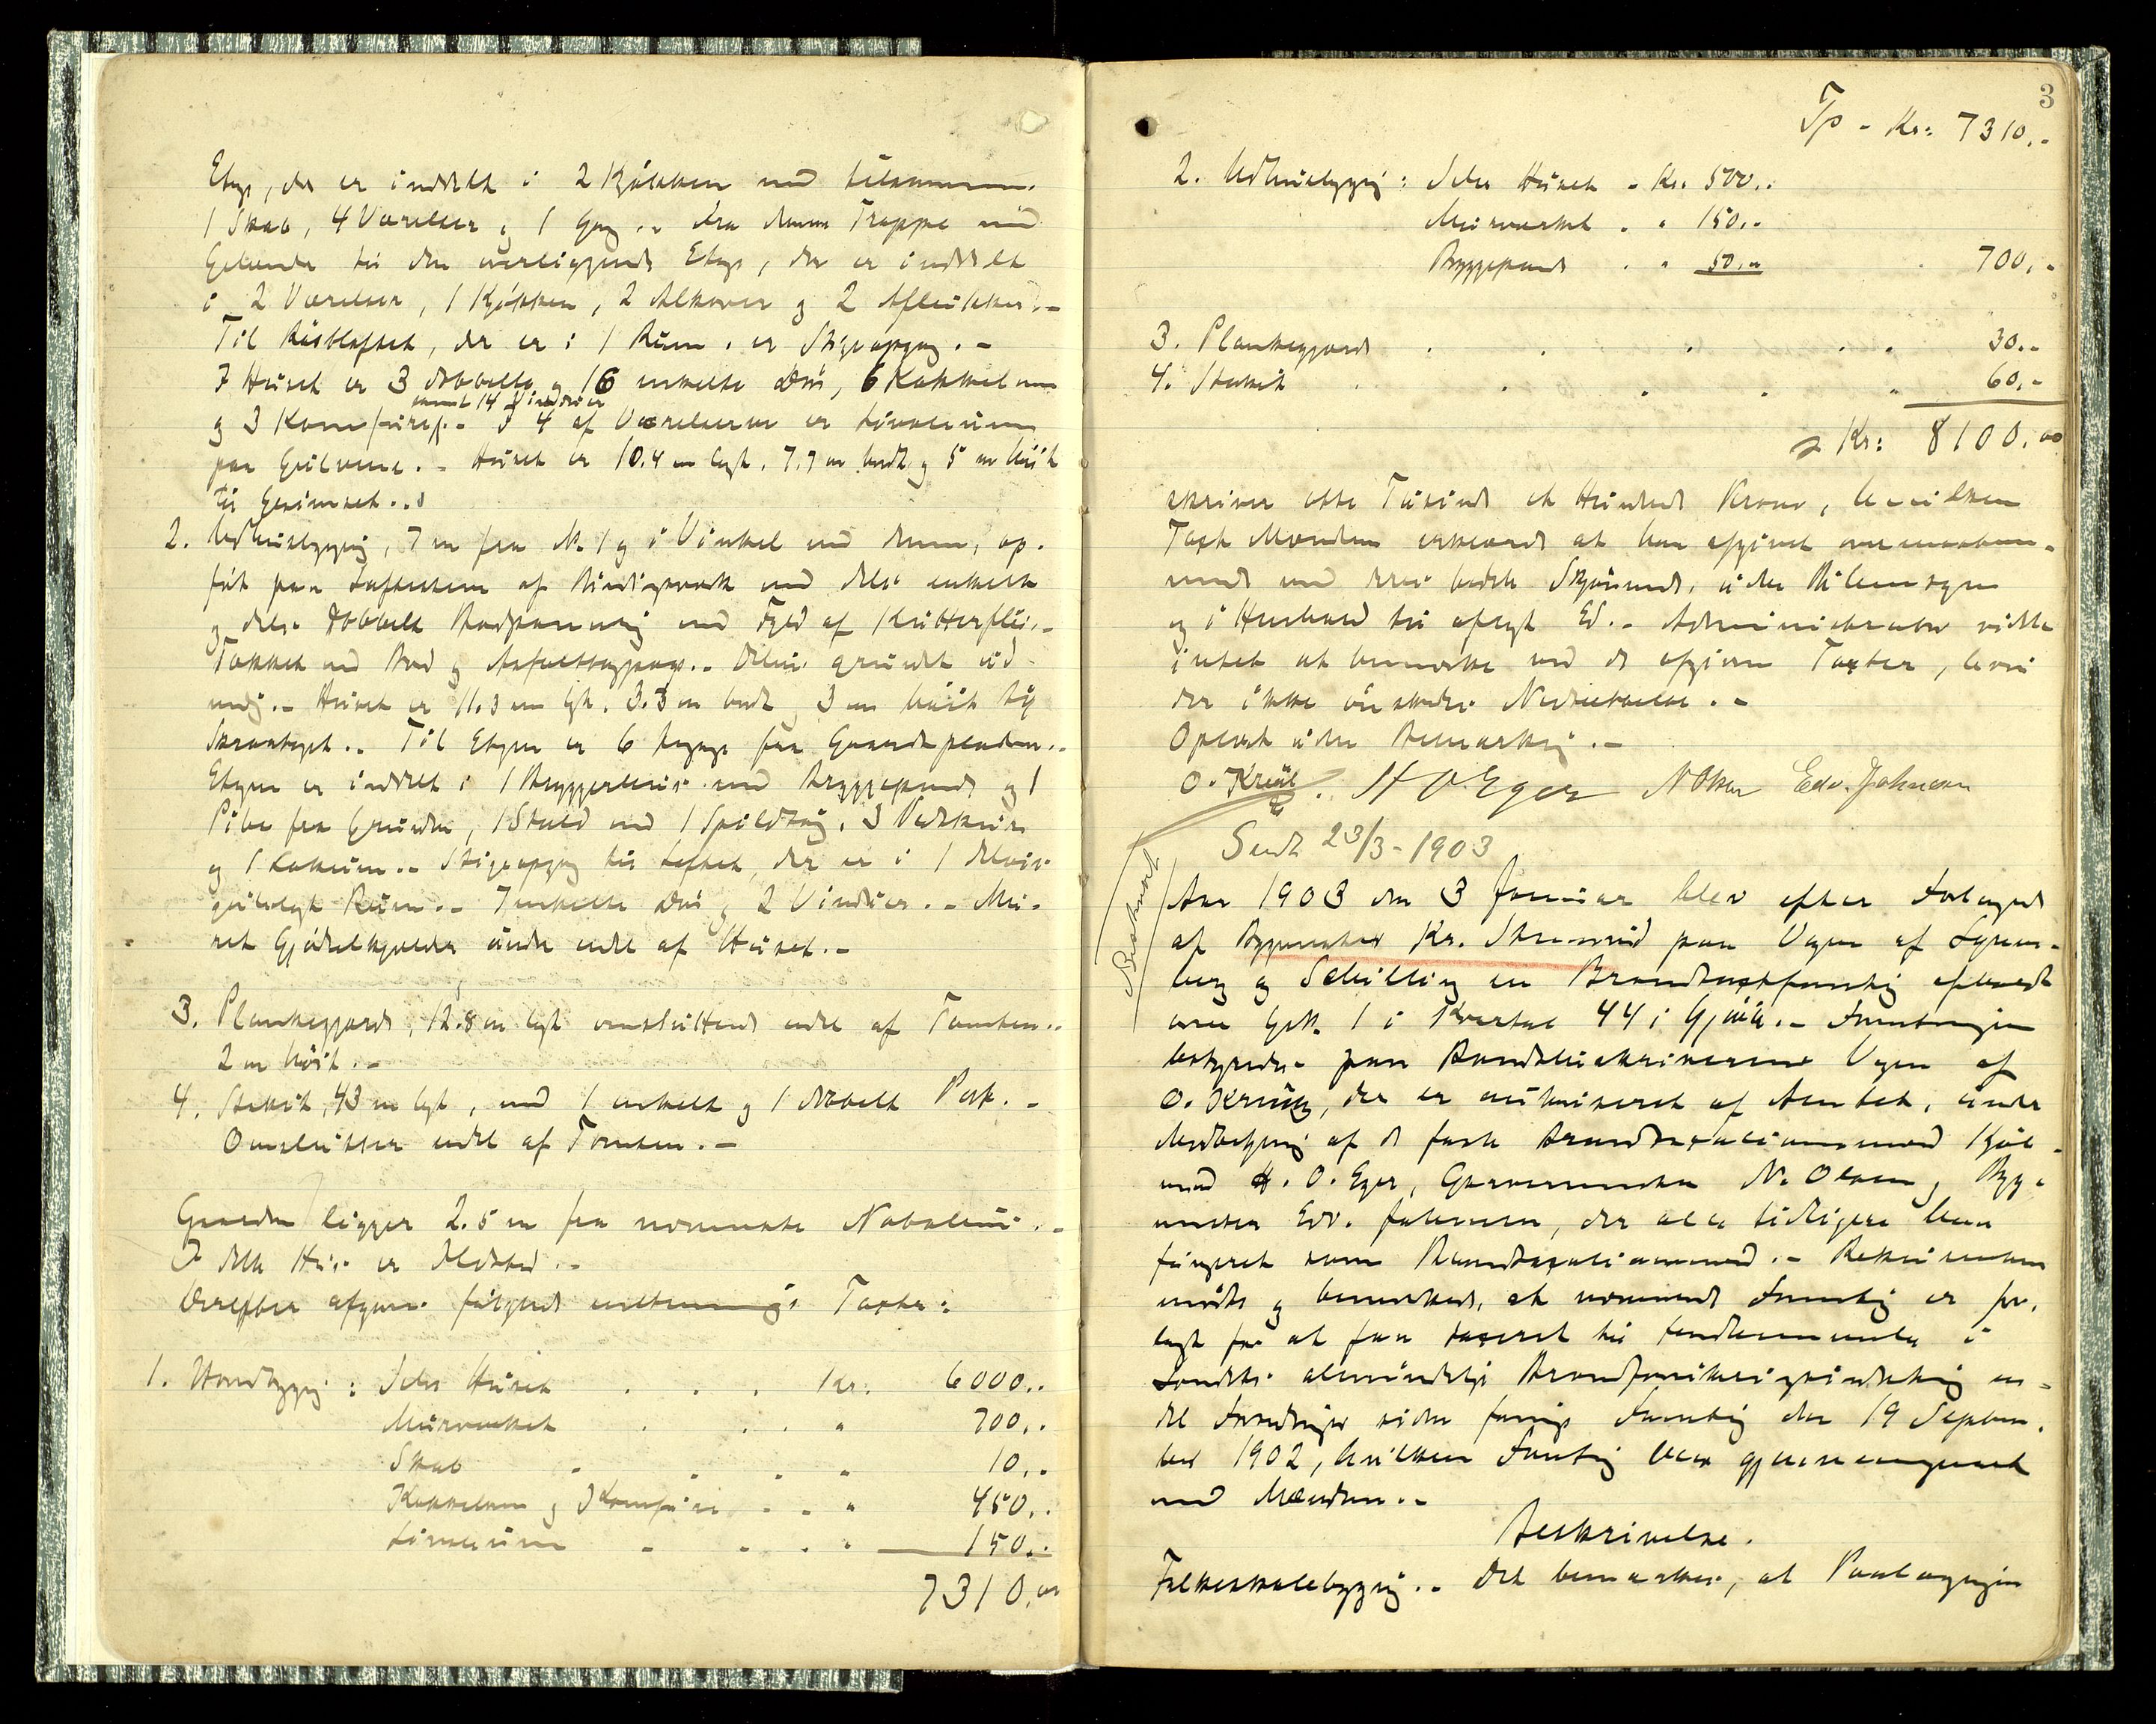 Etage, der er inddelt i 2 Kjøkken med
1 Skab, 4 Værelser og 1 Gang .. Fra denne Trappe med
Gelænder til den overliggende Etage, der er inddelt
i 2 Værelser, 1 Kjøkken, 2 Alkover og 2 Aflukker.-
Til Røstloftet, der er i 1 Rum, er Stigeopgang.-
I Huset er 3 dobbelte og 16 enkelte Døre, 6 Kakkelovne
samt 14 Vinduer
og 3 Komfurer.- I 4 af Værelserne er Linoleum
paa Gulvene.- Huset er 10.4 m langt, 7.7 m bredt og 5 m høit
til Gesimset..
2. Udhusbygning, 7 m fra No 1 og i Vinkel med denne, op-
ført paa af Bindingsværk med dels enkelt
og dels dobbelt Bordpanning med Fyld af Kutterflis.-
Tækket med Bord og Asfaltpap.. Delvis grundet ud-
vendig.- Huset er 11.3 m langt, 3.3 m bredt og 3 m høit til
Skraataget.. Til Etagen er 6 Indgange fra Gaardspladsen..
Etagen er inddelt i 1 Bryggerhus med Bryggepande og 1
Pibe fra Grunden, 1 Stald med 1 Spiltoug, 3 Vedskur
og 1 .. Stigeopgang til Loftet, der er i 1 delvis
gulvlagt Rum.- 7 enkelte Døre og 2 Vinduer.- Mu-
ret Gjødselkjælder under endel af Huset.-
3. Plankegjærde, 12.8 m langt omsluttende endel af Tomten..
2 m høit.-
4. Stakit, 43 m langt, med 1 enkelt og 1 dobbelt Port.-
Omslutter endel af Tomten.-
Gaarden ligger 2.5 m fra nærmeste Nabohus.-
I dette Hus er Ildsted.-
Derefter afgaves følgende Taxter:
1. Vaanbygning: Selve Huset . . . Kr. 6000..
Murværket . . . " 700..
Skab . . . " 10..
Kakkelovne og Komfurer . . " 450..
Linoleum . . . " 150..
7310.00
3
Tp - Kr: 7310.-
2. Udhusbygning: Selve Huset - Kr. 500..
Murværket . " 150.-
Bryggepande . " 50.- 700.-
3. Plankegjærde . . . . . 30.-
4. Stakit . . . . . 60.-
Kr: 8100.00
skriver otte Tusind et Hundrede Kroner, hvilken
Taxt Mændene erklærede at have afgivet overensstem-
mende med deres bedste Skjønnende, uden Vilensregn
og i Henhold til aflagt Ed.- Administrator vidste
intet at bemærke ved de afgivne Taxter, hvori
der ikke ønskedes Nedsættelse.-
Oplæst uden Bemærkning.-
O. Krüll. H O Eger N Olsen Edv. Johnsen
Sendt 23/3-1903
Beskrevet
Aar 1903 den 3 Januar blev efter Forlangende
af Bygmester Kr. Skrinrud paa Vegne af
og Schilling en Brandtaxtforretning afholdt
over Gaard No. 1 i Kvartal 44 i Gjøvik.- Forretningen
bestyredes paa Brandskriverens Vegne af
O. Krüll, der er autoriseret af Amtet, under
Medbetjening af de faste Brandtaxationsmænd Kjøb-
mand H. O. Eger, Garvermester N. Olsen og Byg-
mester Edv. Johnsen, der alle tidligere have
fungeret som Brandtaxationsmænd.- Rekvirenten
mødte og bemærkede, at nærværende Forretning er for-
langt for at faa taxeret til
Landets almindelige Brandforsikringsindretning en-
del Forandringer siden forrige Forretning den 19 Septem-
ber 1902, hvilken Forretning blev gjennemgaaet
med Mændene.-
Beskrivelse.
Folkeskolebygning.. Det bemærkes, at